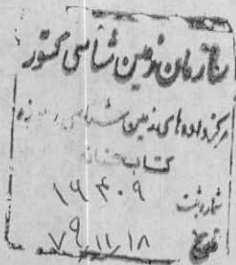 سازمان زمین شناسی کشور
مرکز داده های زمین شناسی
کتابخانه
شماره ثبت ۱۹۴۰۹
تاریخ ۷۹/۱۱/۱۸